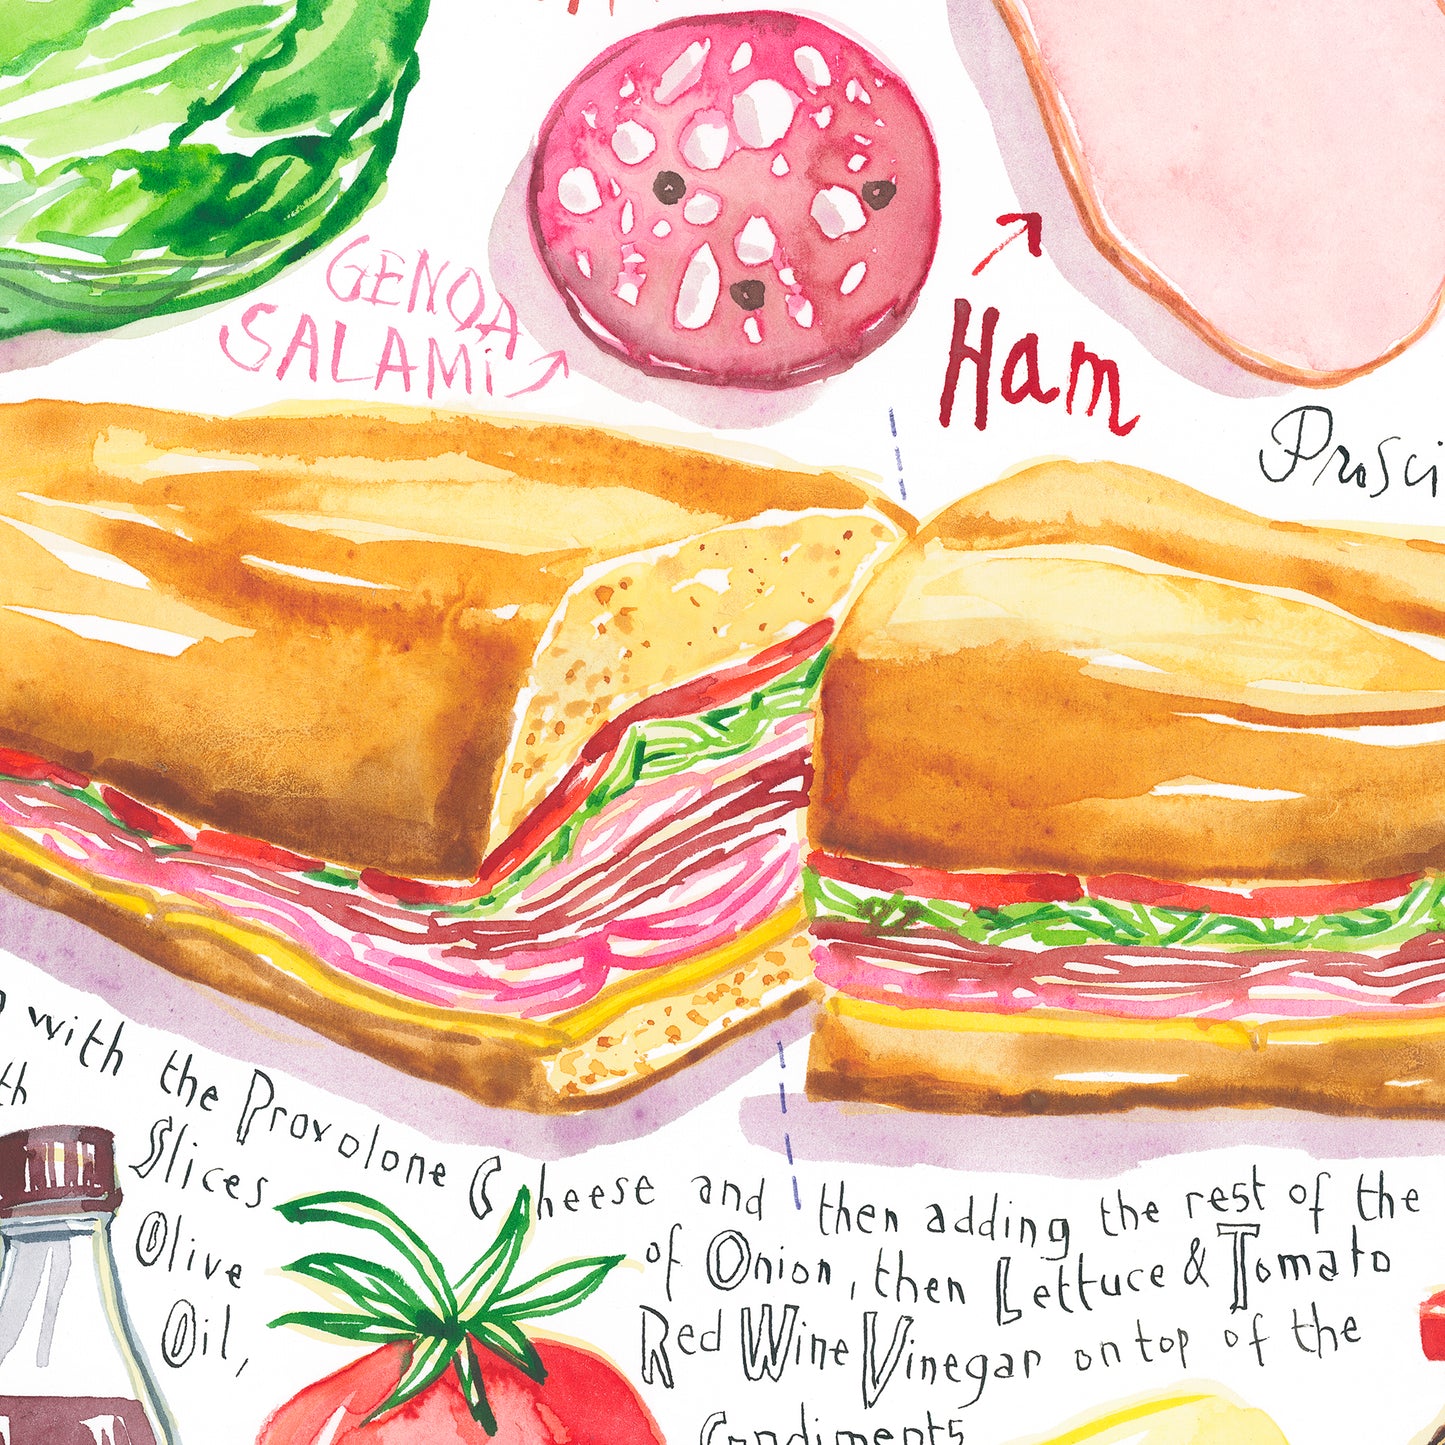 GENOA
SALAMi
Ham
Prosci
with the Provolone Cheese and then adding the rest of the
th
Slices of Onion, then Lettuce & Tomato
Olive Red Wine Vinegar on top of the
Oil, Condiments